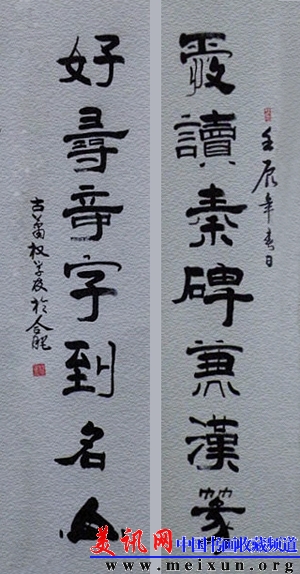 壬辰年春日
愛讀秦碑兼漢篆
好尋竒字到名山
古萧权学友於合肥
美讯网 中国书画收藏频道
www.meixun.org